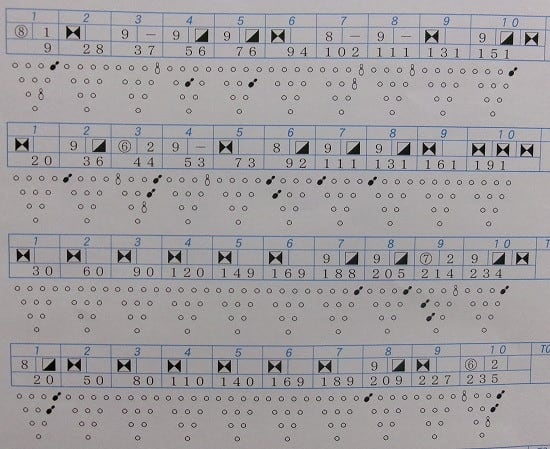 1 2 3 4 5 6 7 8 9 10
⑧ 1 ⧓ 9 − 9 ◢ 9 ◢ ⧓ 8 − 9 − ⧓ 9 ◢ ⧓
9 28 37 56 76 94 102 111 131 151
1 2 3 4 5 6 7 8 9 10
⧓ 9 ◢ ⑥ 2 9 − ⧓ 8 ◢ 9 ◢ 9 ◢ ⧓ ⧓ ⧓ ⧓
20 36 44 53 73 92 111 131 161 191
1 2 3 4 5 6 7 8 9 10 T
⧓ ⧓ ⧓ ⧓ ⧓ ⧓ 9 ◢ 9 ◢ ⑦ 2 9 ◢ ⧓
30 60 90 120 149 169 188 205 214 234
1 2 3 4 5 6 7 8 9 10 TO
8 ◢ ⧓ ⧓ ⧓ ⧓ ⧓ ⧓ 9 ◢ ⧓ ⑥ 2
20 50 80 110 140 169 189 209 227 235